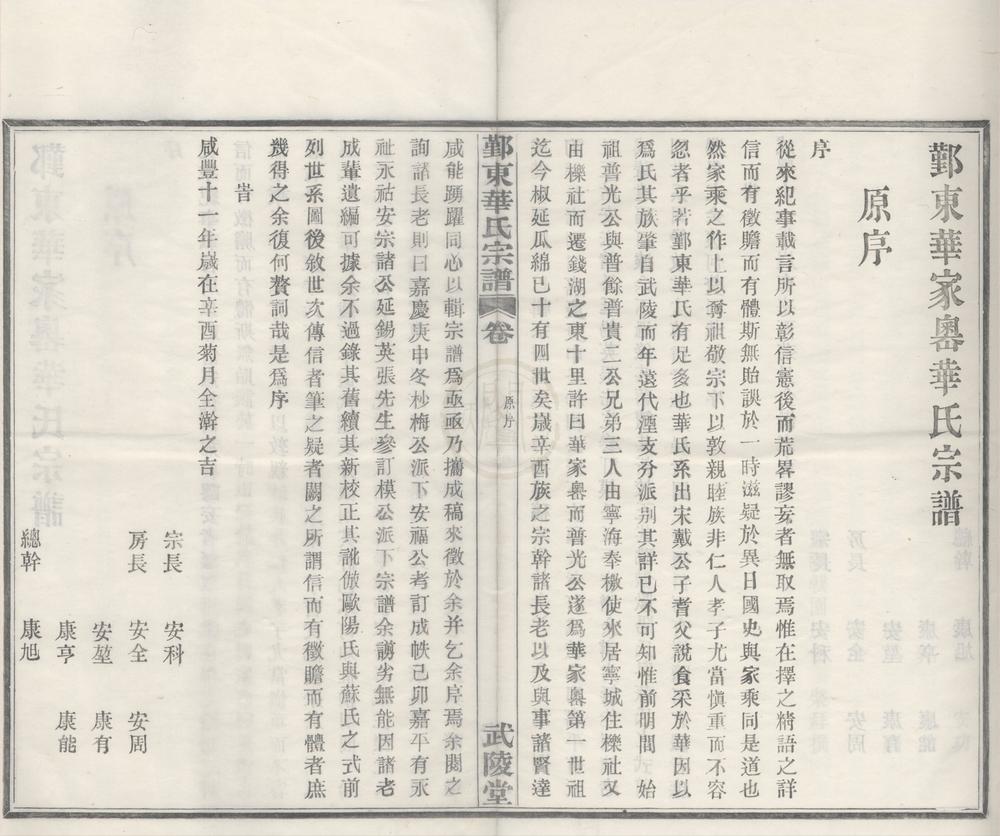 鄞東華家嶴華氏宗譜
原序
序
從來紀事載言所以彰信憲後而荒畧謬妄者無取焉惟在擇之精語之詳
信而有徵贍而有體斯無貽誤於一時滋疑於異日國史與家乘同是道也
然家乘之作上以尊祖敬宗下以敦親睦族非仁人孝子尤當愼重而不容
忽者乎若鄞東華氏有足多也華氏系出宋戴公子耆父說食采於華因以
爲氏其族肇自武陵而年遠代湮支分派別其詳已不可知惟前明間 始
祖普光公與普餘普貴二公兄弟三人由寧海奉檄使來居寧城住櫟社又
由櫟社而遷錢湖之東十里許曰華家嶴而普光公遂爲華家嶴第一世祖
迄今椒延瓜綿已十有四世矣嵗辛酉族之宗幹諸長老以及與事諸賢達
鄞東華氏宗譜
卷
原序
武陵堂
咸能踴躍同心以輯宗譜爲亟亟乃攟成稿來徵於余并乞余序焉余閱之
詢諸長老則曰嘉慶庚申冬杪梅公派下安福公考訂成帙己卯嘉平有永
祉永祜安宗諸公延錫英張先生參訂模公派下宗譜余謭劣無能因諸老
成輩遺編可據余不過錄其舊續其新校正其訛倣歐陽氏與蘇氏之式前
列世系圖後敘世次傳信者筆之疑者闕之所謂信而有徵贍而有體者庶
幾得之余復何贅詞哉是爲序
旹
咸豐十一年嵗在辛酉菊月全澣之吉
宗長 安科
房長 安全 安周
安堃 康有
康亨 康能
總幹 康旭